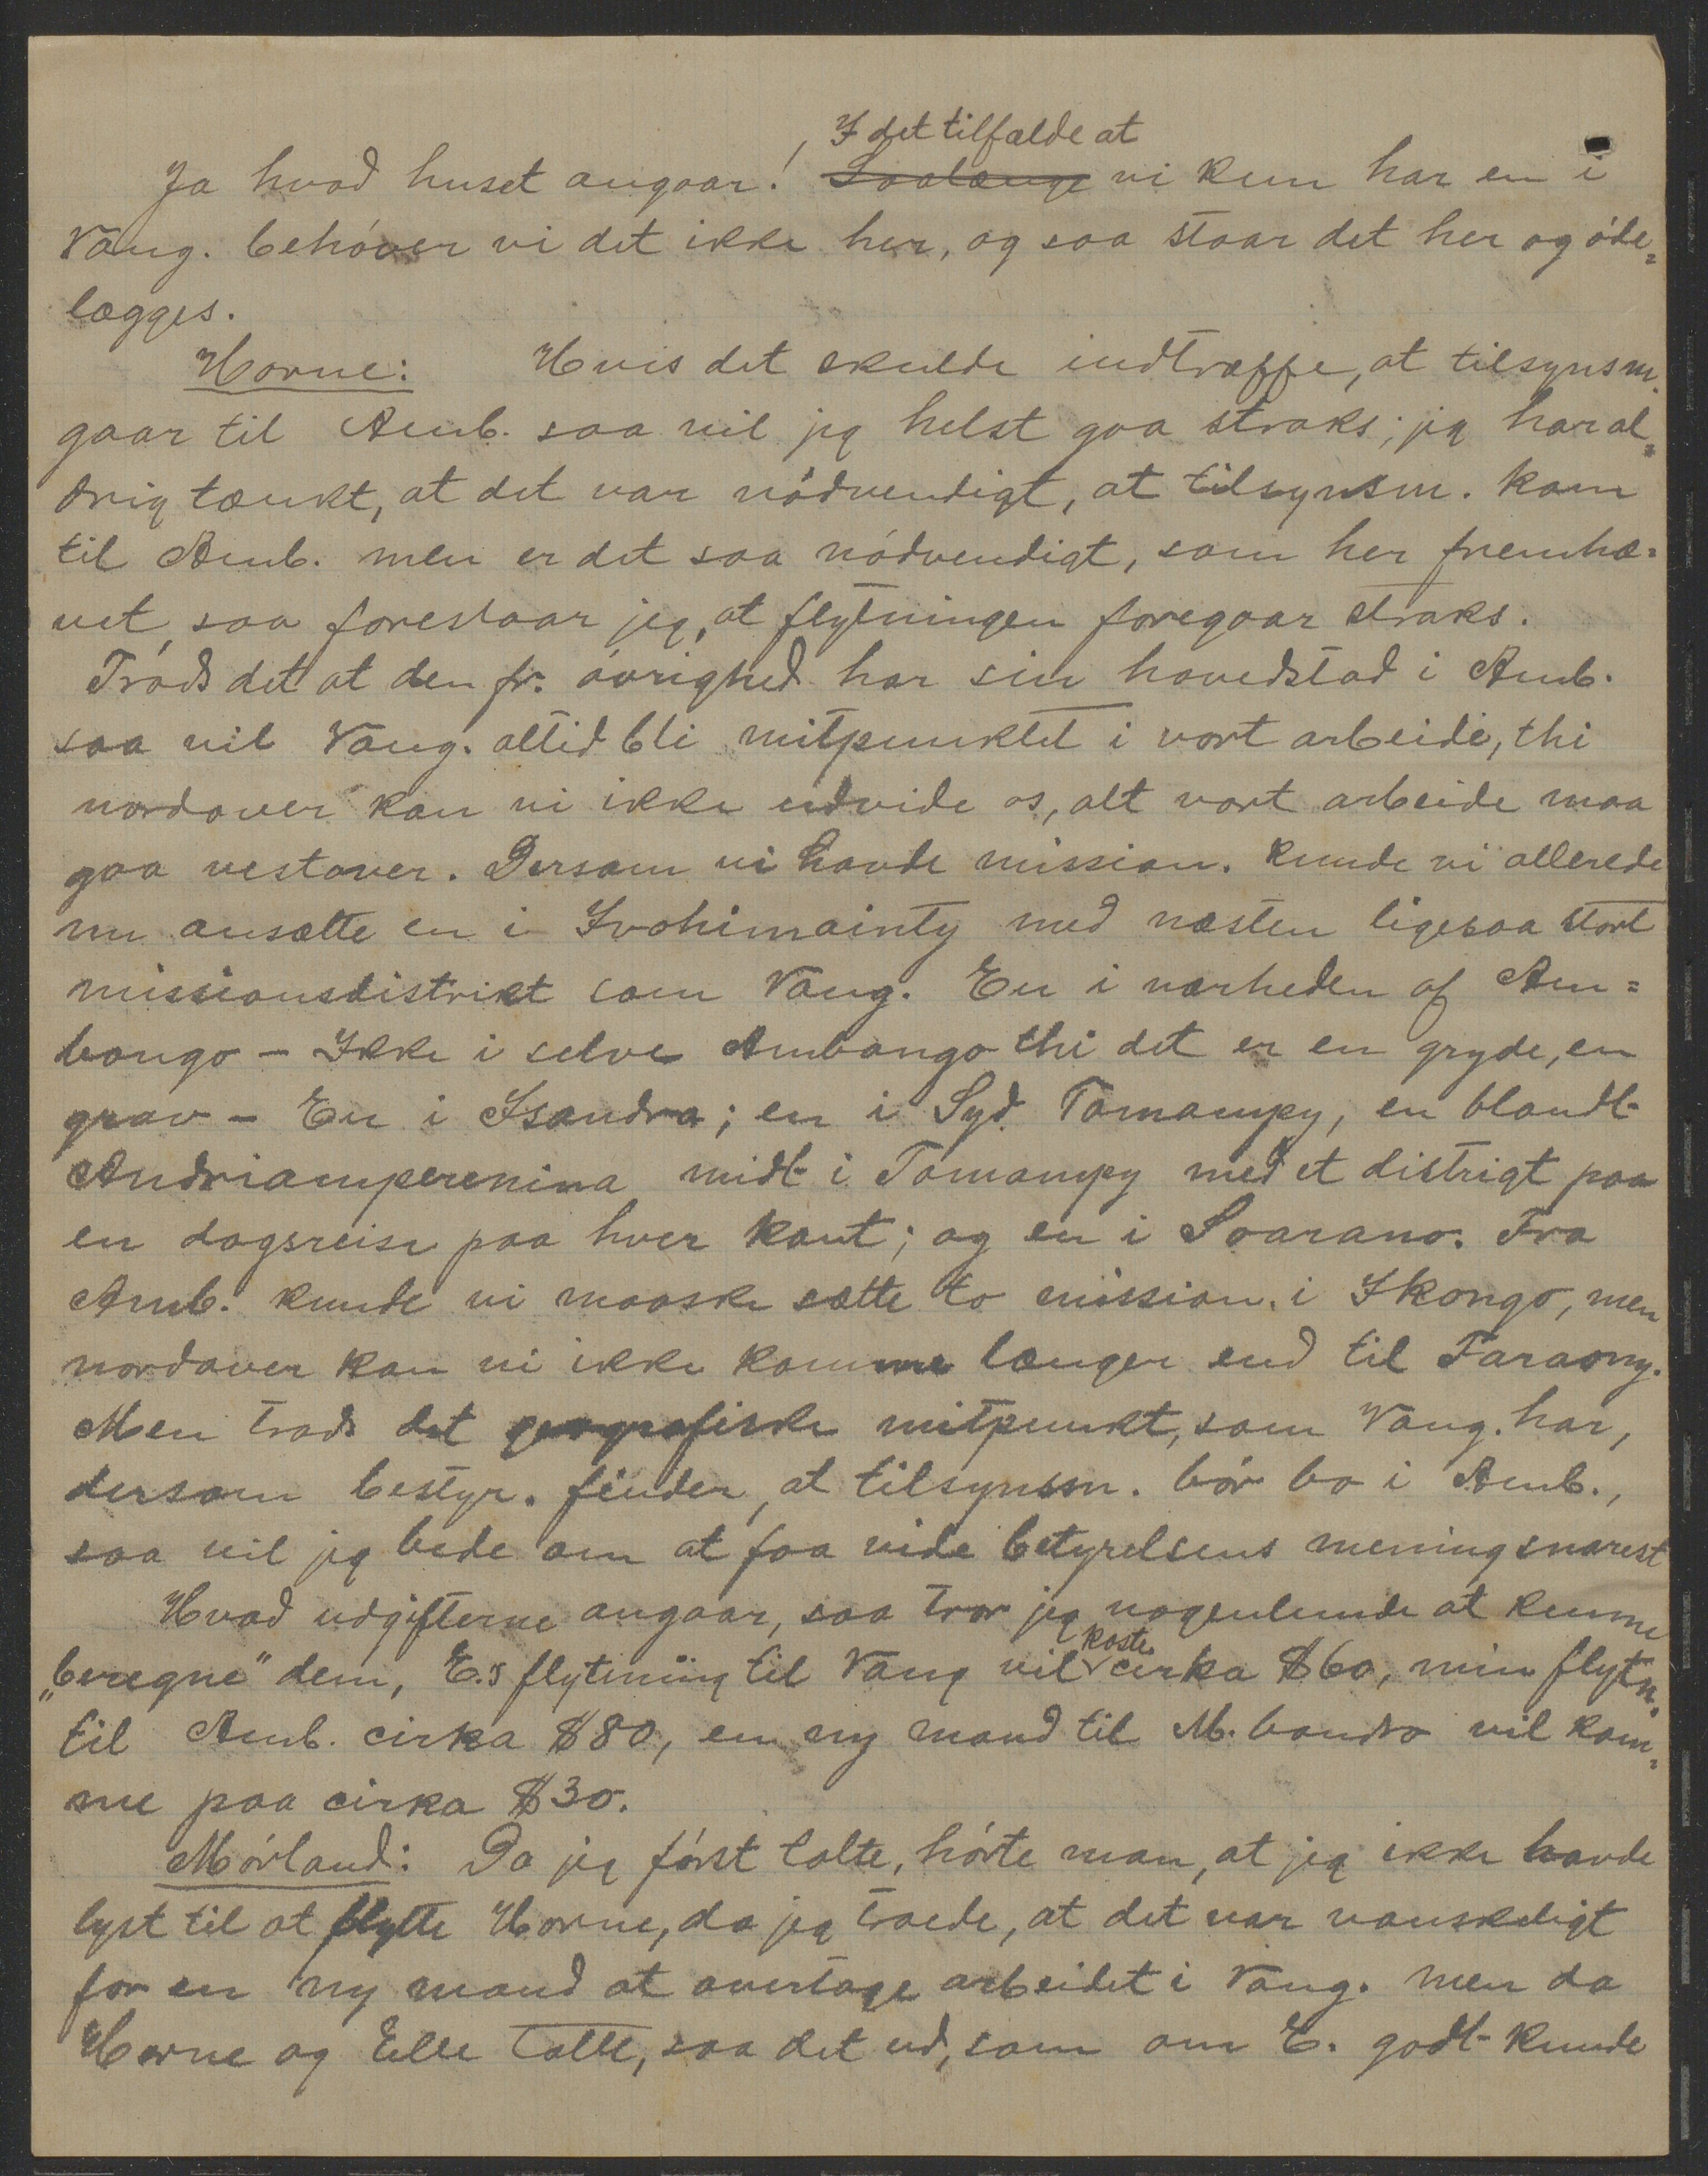 I det tilfælde at
Ja hvad huset angaar! Saalænge vi kun har en i
Vang. behóver vi det ikke her, og saa staar det her og óde=
lægges.
Horne: Hvis det skulde indtræffe, at tilsynsm.
gaar til Amb. saa vil jeg helst gaa straks; jeg har al=
drig tænkt, at det var nódvendigt, at tilsynsm. kom
til Amb. men er det saa nódvendigt, som her fremhæ=
vet, saa foreslaar jeg, at flytningen foregaar straks.
Tróds det at den fr. óvrighed har sin hovedstad i Amb.
saa vil Vang. altid bli mitpunktet i vort arbeide, thi
nordover kan vi ikke udvide os, alt vort arbeide maa
gaa vestover. Dersom vi havde mission. kunde vi allerede
nu ansætte en i Ivohimainty med næsten ligesaa stort
missionsdistrikt som Vang. En i nærheden af Am=
bongo – Ikke i selve Ambongo thi det er en gryde, en
grav – En i Isandra; en i Syd Tomampy, en blandt
Andriamperenina midt i Tomampy med et distrigt paa
en dagsreise paa hver kant; og en i Soarano. Fra
Amb. kunde vi maaske sætte to mission. i Ikongo, men
nordover kan vi ikke komme længer end til Faraony.
Men trods det geografiske mitpunkt, som Vang. har,
dersom bestyr. finder, at tilsynsm. bór bo i Amb.,
saa vil jeg bede om at faa vide betyrelsens mening snarest
Hvad udgifterne angaar, saa tror jeg nogenlunde at kunne
koste
„beregne" dem, E.s flytning til Vang vil cirka $60, min flytn.
til Amb. cirka $80, en ny mand til M.bondro vil kom=
me paa cirka $30.
Mórland: Da jeg fórst talte, hórte man, at jeg ikke havde
lyst til at flytte Horne, da jeg troede, at det var vanskeligt
for en ny mand at overtage arbeidet i Vang. men da
Horne og Elle talte, saa det ud, som om E. godt kunde